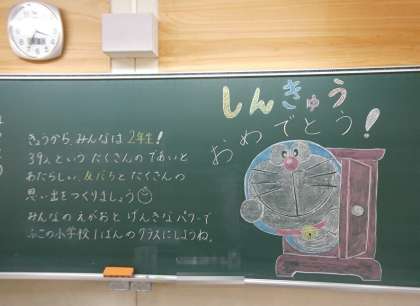 しんきゅう
おめでとう!
きょうから、みんなは2年生!
39人というたくさんのであいと
あたらしい、友だちとたくさんの
思い出をつくりましょう
みんなのえがおとげんきなパワーで
ふこの小学校1ばんのクラスにしようね。